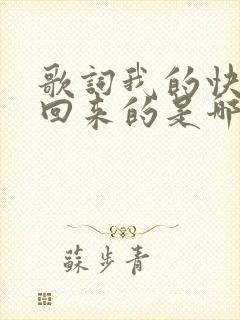 歌詞我的快
回来的是哪
蘇步青